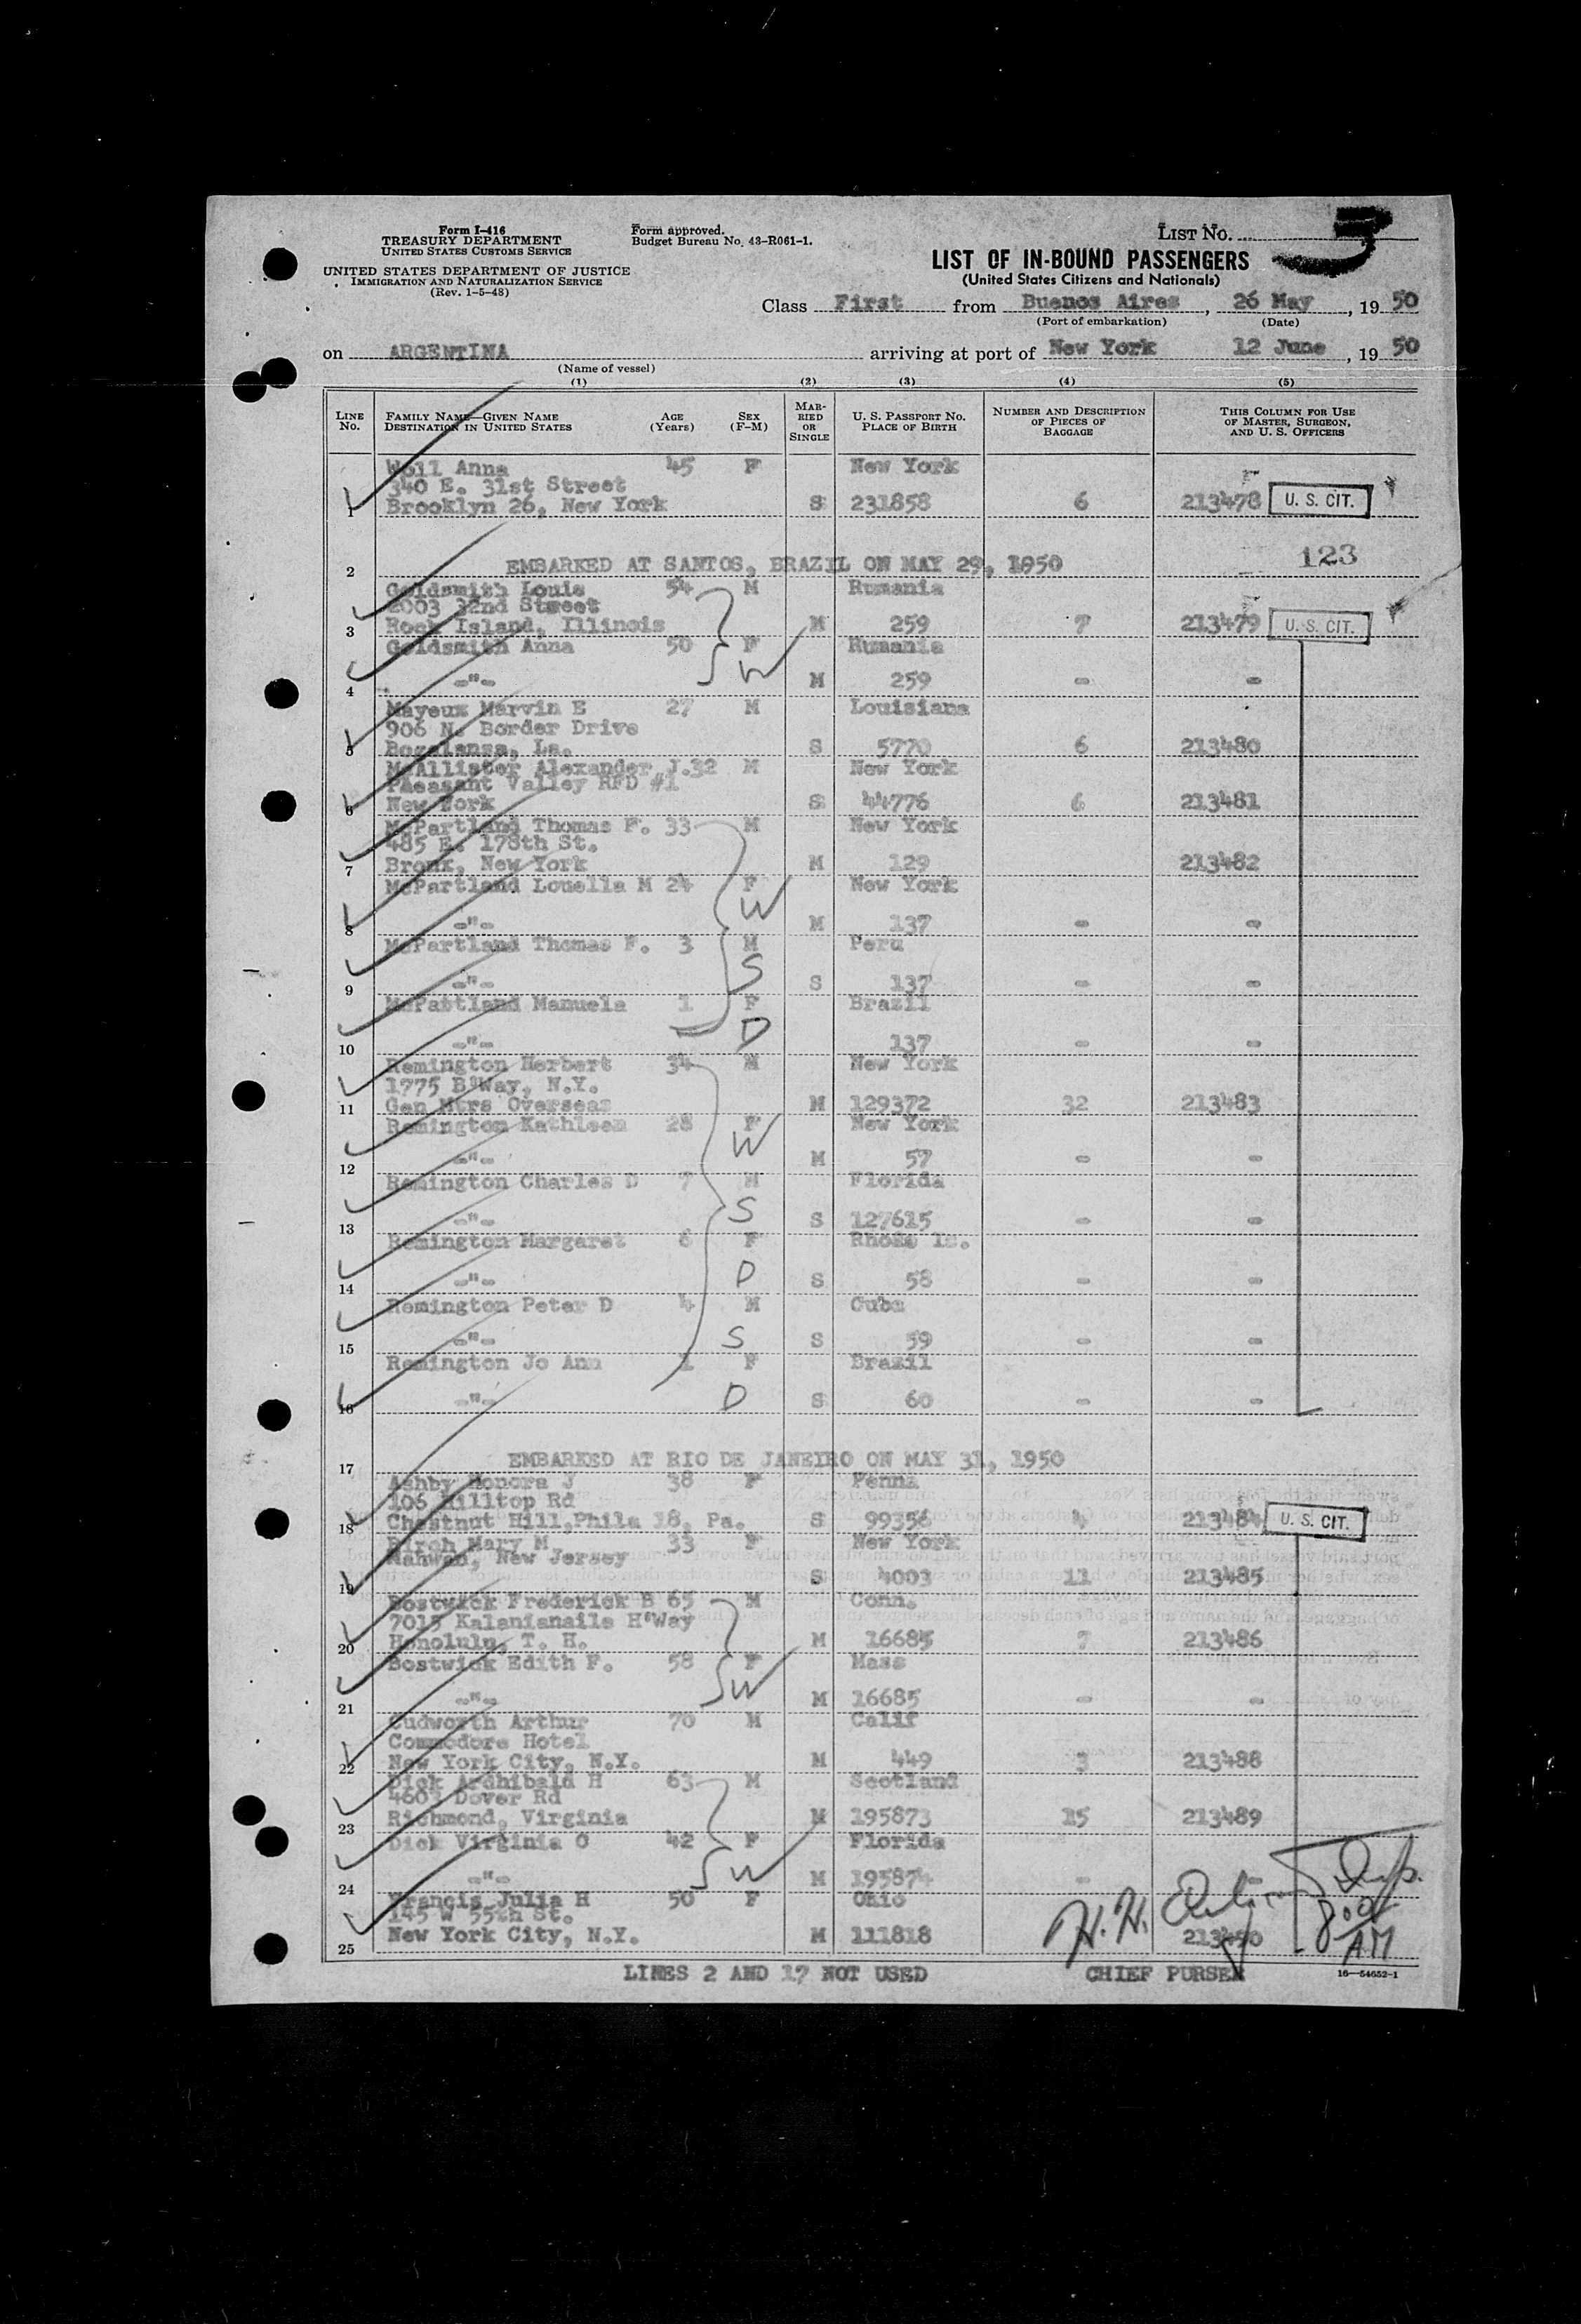 Form I-416
TREASURY DEPARTMENT
UNITED STATES CUSTOMS SERVICE
UNITED STATES DEPARTMENT OF JUSTICE
IMMIGRATION AND NATURALIZATION SERVICE
(Rev. 1-5-48)
Form approved.
Budget Bureau No. 43-R061-1.
LIST NO. 5
LIST OF IN-BOUND PASSENGERS
(United States Citizens and Nationals)
Class First from Buenos Aires, 26 May, 1950
(Port of embarkation) (Date)
on ARGENTINA arriving at port of New York 12 June, 1950
(Name of vessel)
(1) (2) (3) (4) (5)
LINE NO. FAMILY NAME—GIVEN NAME DESTINATION IN UNITED STATES AGE (Years) SEX (F-M) MARRIED OR SINGLE U. S. PASSPORT NO. PLACE OF BIRTH NUMBER AND DESCRIPTION OF PIECES OF BAGGAGE THIS COLUMN FOR USE OF MASTER, SURGEON, AND U. S. OFFICERS
Woll Anna 45 F New York
340 E. 31st Street
1 Brooklyn 26, New York S 231858 6 213478 U. S. CIT.
123
2 EMBARKED AT SANTOS, BRAZIL ON MAY 29, 1950
Goldsmith Louis 54 M Rumania
2003 32nd Street
3 Rock Island, Illinois M 259 7 213479 U. S. CIT.
Goldsmith Anna 50 F Rumania
W
4 -"- M 259 - -
Mayeux Marvin E 27 M Louisiana
906 N. Border Drive
5 Bogalansa, La. S 5770 6 213480
McAllister Alexander J.32 M New York
Pleasant Valley RFD #1
6 New York S 44776 6 213481
McPartland Thomas F. 33 M New York
485 E. 178th St.
7 Bronx, New York M 129 213482
McPartland Louella M 24 F New York
W
8 -"- M 137 - -
McPartland Thomas F. 3 M Peru
S
9 -"- S 137 - -
McPartland Manuela 1 F Brazil
D
10 -"- 137 - -
Remington Herbert 34 M New York
1775 B'Way, N.Y.
11 Gen Mtrs Overseas M 129372 32 213483
Remington Kathleen 28 F New York
W
12 -"- M 57 - -
Remington Charles D 7 M Florida
S
13 -"- S 127615 - -
Remington Margaret 6 F Rhode Is.
D
14 -"- S 58 - -
Remington Peter D 4 M Cuba
S
15 -"- S 59 - -
Remington Jo Ann 1 F Brazil
D
16 -"- S 60 - -
17 EMBARKED AT RIO DE JANEIRO ON MAY 31, 1950
Ashby Honora J 38 F Penna
106 Hilltop Rd
18 Chestnut Hill,Phila 18, Pa. S 99356 4 213484 U. S. CIT.
Birch Mary M 33 F New York
Mahwah, New Jersey
19 S 4003 11 213485
Bostwick Frederick B 65 M Conn.
7015 Kalanianaile H'Way
20 Honolulu, T. H. M 16685 7 213486
Bostwick Edith F. 58 F Mass
W
21 -"- M 16685 - -
Cudworth Arthur 70 M Calif
Commodore Hotel
22 New York City, N.Y. M 449 3 213488
Dick Archibald H 63 M Scotland
4603 Dover Rd
23 Richmond, Virginia M 195873 15 213489
Dick Virginia O 42 F Florida
W
24 -"- M 195874 -
Francis Julia H 50 F Ohio
145 W 55th St.
25 New York City, N.Y. M 111818 213490
H. H.
Insp.
8:00 AM
LINES 2 AND 17 NOT USED CHIEF PURSER 16—54652-1